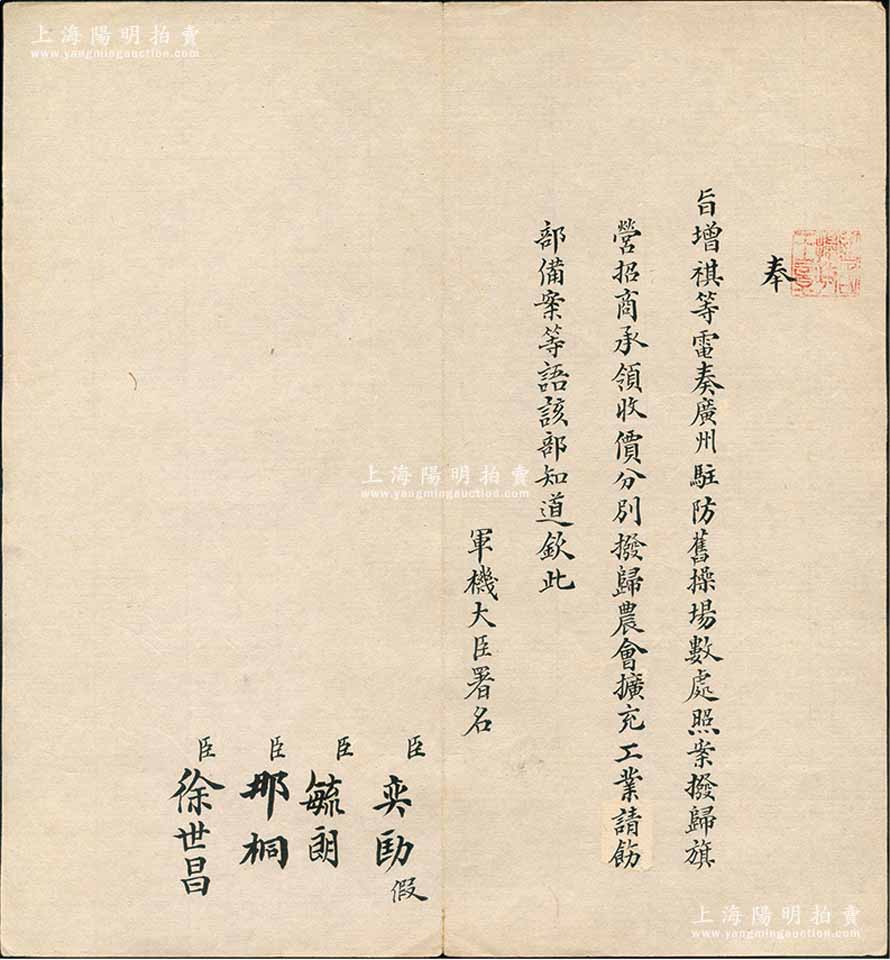 奉
旨增祺等電奏廣州駐防舊操場數處照案撥歸旗
營招商承領收價分別撥歸農會擴充工業請飭
部備案等語該部知道欽此
軍機大臣署名
臣奕劻假
臣毓朗
臣那桐
臣徐世昌
上海陽明拍賣
www.yangmingauction.com
上海陽明拍賣
www.yangmingauction.com
上海陽明拍賣
www.yangmingauction.com